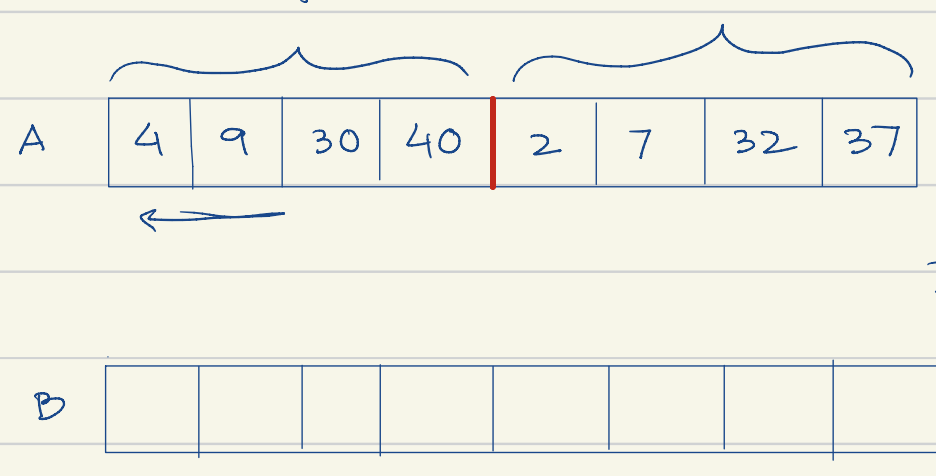 A 4 9 30 40 2 7 32 37
B